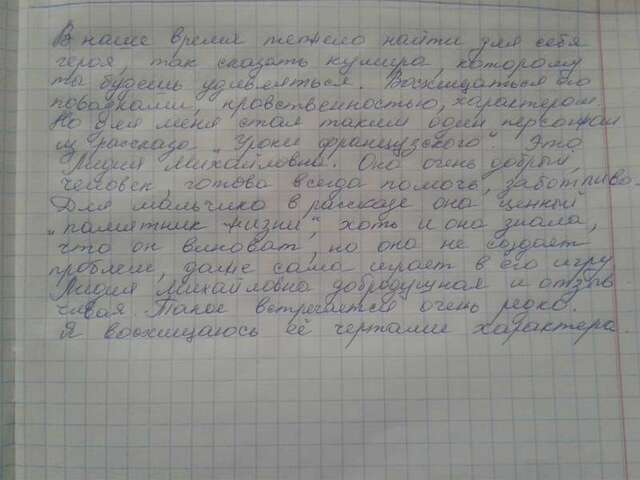 В наше время тяжело найти для себя
героя, так сказать кумира, которому
ты будешь удивляться. Восхищаться его
повадками, нравственностью, характером.
Но для меня стал таким один персонаж
из рассказа "Уроки французского". Это
Лидия Михайловна. Она очень добрый
человек, готова всегда помочь, заботлива.
Для мальчика в рассказе она ценный
"памятник жизни", хоть и она знала,
что он виноват, но она не создает
проблем, даже сама играет в его игру
Лидия Михайловна добродушная и отзыв
чивая. Такое встречается очень редко.
Я восхищаюсь её чертами характера.